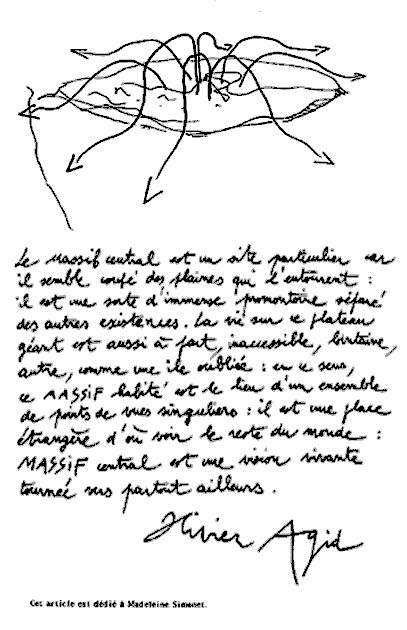 Le Massif central est un site particulier car
il semble coupé des plaines qui l'entourent :
il est une sorte d'immense promontoire séparé
des autres existences. La vie sur ce plateau
géant est aussi à part, inaccessible, lointaine,
autre, comme une île oubliée : en ce sens,
ce MASSIF habité est le lieu d'un ensemble
de points de vues singuliers : il est une place
étrangère d'où voir le reste du monde :
MASSIF central est une vision vivante
tournée vers partout ailleurs.
Olivier Agid
Cet article est dédié à Madeleine Simonet.